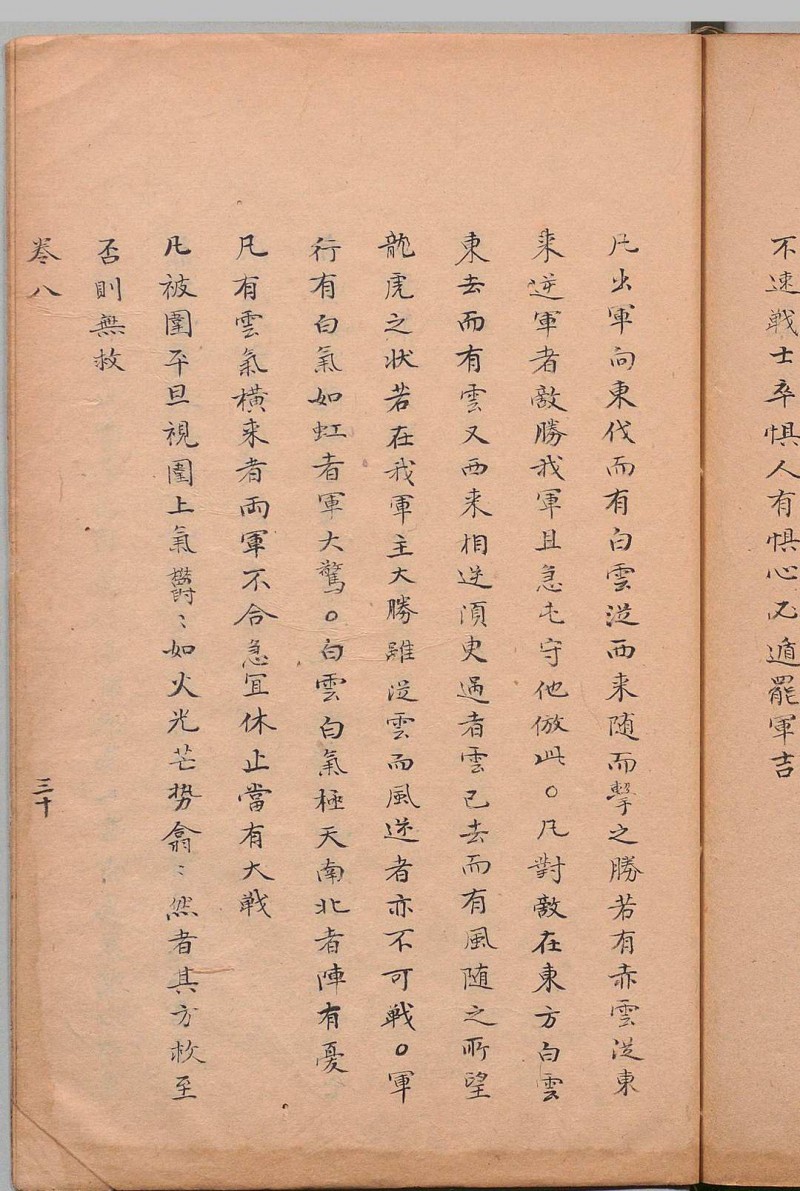 不速戦士卒惧人有惧心又遁罷軍吉
凡出軍向東伐而有白雲従西来随而擊之勝若有赤雲従東
来逆軍者敵勝我軍且急屯守他倣此。凡對敵在東方白雲
東去而有雲又西来相逆須臾過者雲已去而有風随之所望
龍虎之状若在我軍主大勝雖従雲而風逆者亦不可戦。軍
行有白氣如虹者軍大驚。白雲白氣極天南北者陣有憂
凡有雲氣橫来者両軍不合急冝休止當有大戦
凡被圍平旦視圍上氣欝〻如火光芒勢翕〻然者其方救至
否則無救
巻八
三十